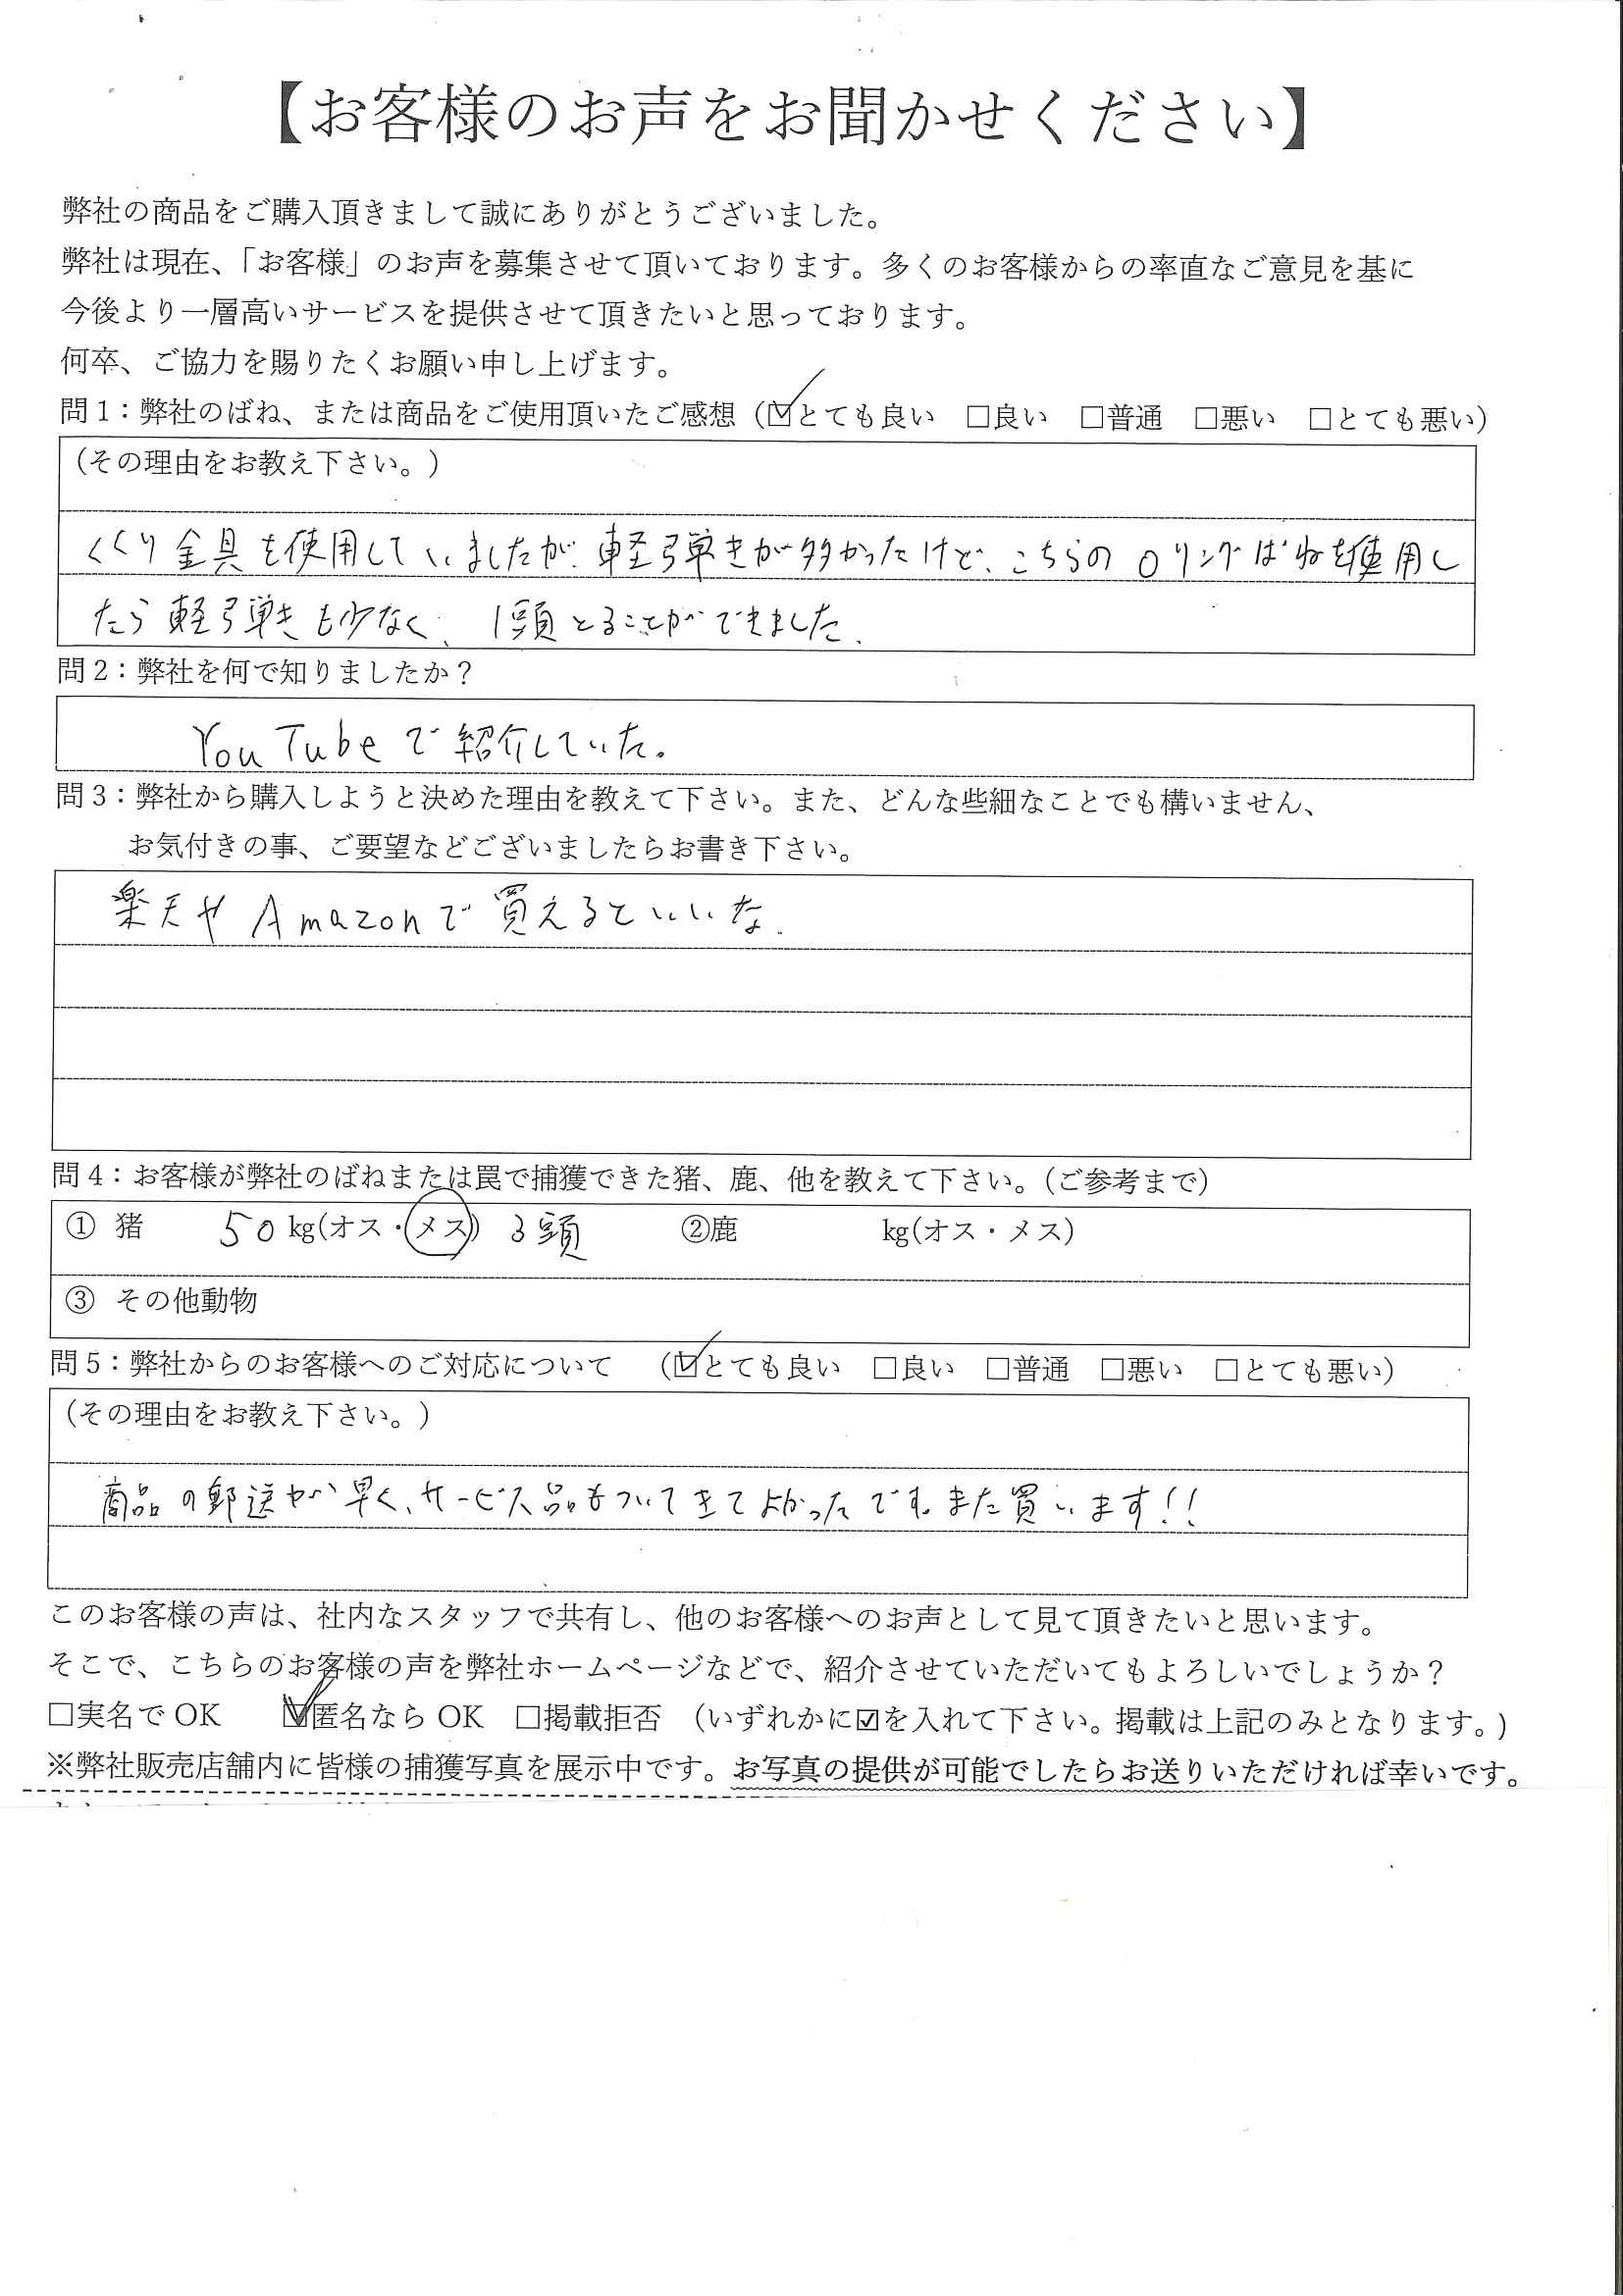 【お客様のお声をお聞かせください】
弊社の商品をご購入頂きまして誠にありがとうございました。
弊社は現在、「お客様」のお声を募集させて頂いております。多くのお客様からの率直なご意見を基に
今後より一層高いサービスを提供させて頂きたいと思っております。
何卒、ご協力を賜りたくお願い申し上げます。
問1：弊社のばね、または商品をご使用頂いたご感想（☑とても良い　□良い　□普通　□悪い　□とても悪い）
（その理由をお教え下さい。）
くくり金具を使用していましたが、軽弓弾きが多かったけど、こちらのOリングばねを使用し
たら軽弓弾きも少なく、1頭とることができました。
問2：弊社を何で知りましたか？
YouTubeで紹介していた。
問3：弊社から購入しようと決めた理由を教えて下さい。また、どんな些細なことでも構いません、
お気付きの事、ご要望などございましたらお書き下さい。
楽天やAmazonで買えるといいな.
問4：お客様が弊社のばねまたは罠で捕獲できた猪、鹿、他を教えて下さい。（ご参考まで）
① 猪　50kg(オス・メス) 3頭　②鹿　kg(オス・メス)
③ その他動物
問5：弊社からのお客様へのご対応について　（☑とても良い　□良い　□普通　□悪い　□とても悪い）
（その理由をお教え下さい。）
商品の郵送が早く、サービス品もついてきてよかったです。また買います!!
このお客様の声は、社内なスタッフで共有し、他のお客様へのお声として見て頂きたいと思います。
そこで、こちらのお客様の声を弊社ホームページなどで、紹介させていただいてもよろしいでしょうか？
□実名でOK　☑匿名ならOK　□掲載拒否　（いずれかに☑を入れて下さい。掲載は上記のみとなります。）
※弊社販売店舗内に皆様の捕獲写真を展示中です。お写真の提供が可能でしたらお送りいただければ幸いです。